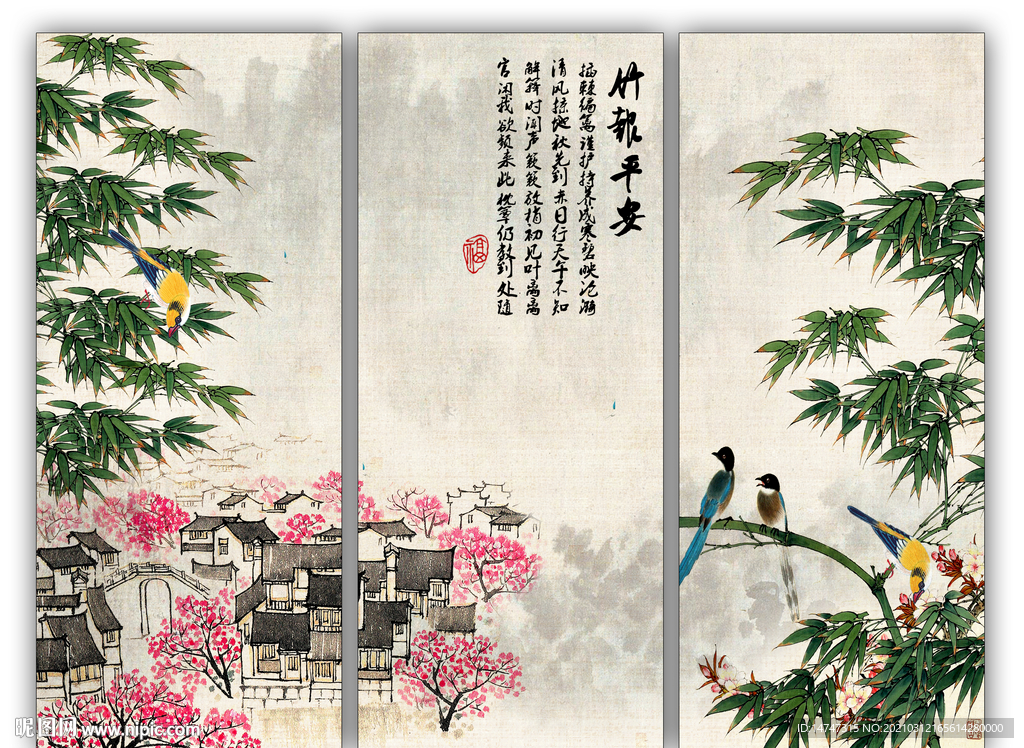 竹報平安
插棘编篱谨护持养成寒碧映沦漪
清风掠地秋先到赤日行天午不知
解箨时闻声簌簌放梢初见叶离离
官闲我欲频来此枕簟仍教到处随
福
昵图网 www.nipic.com
ID:14747315 NO:20210312165614280000